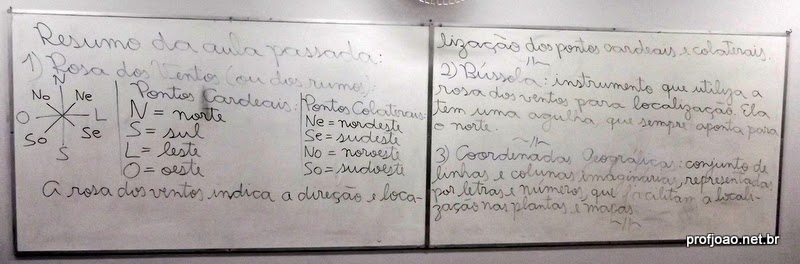 Resumo da aula passada:
1) Rosa dos Ventos (ou dos rumos):
N
No Ne
O L
So Se
S
Pontos Cardeais:
N = norte
S = sul
L = leste
O = oeste
Pontos Colaterais:
Ne = nordeste
Se = sudeste
No = noroeste
So = sudoeste
A rosa dos ventos indica a direção e loca-
lização dos pontos cardeais e colaterais.
2) Bússola: instrumento que utiliza a
rosa dos ventos para localização. Ela
tem uma agulha, que sempre aponta para
o norte.
3) Coordenadas Geográficas: conjunto de
linhas e colunas imaginárias, representadas
por letras e números, que facilitam a locali-
zação nas plantas e mapas.
profjoao.net.br